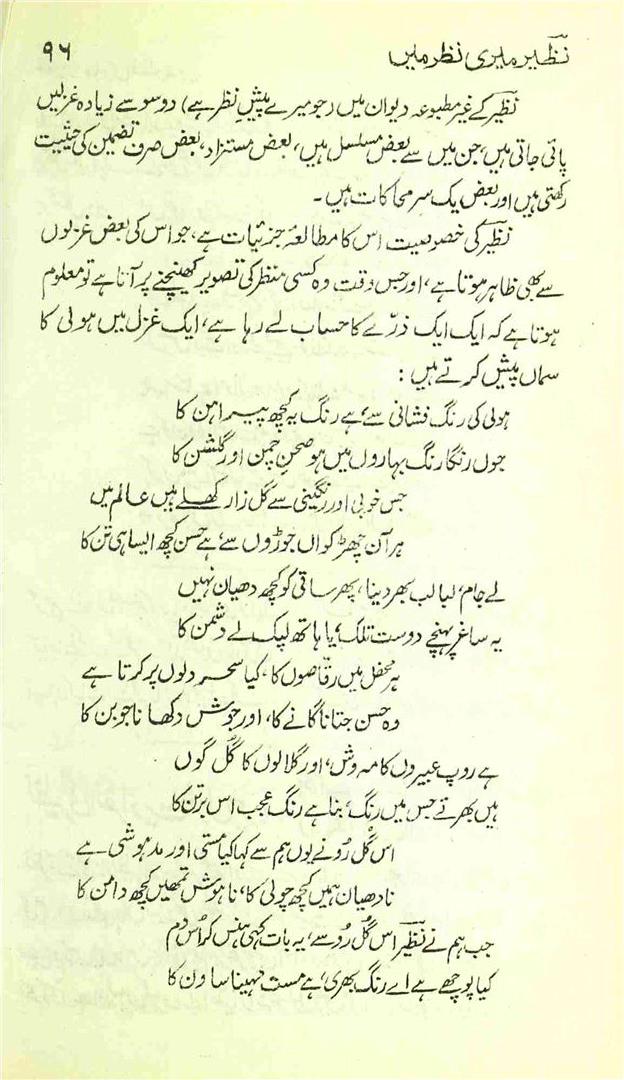 نظیر میری نظر میں ۹۶
نظیر کے غیر مطبوعہ دیوان میں (جو میرے پیشِ نظر ہے) دو سو سے زیادہ غزلیں
پائی جاتی ہیں، جن میں سے بعض مسلسل ہیں، بعض مستزاد، بعض صرف تضمین کی حیثیت
رکھتی ہیں اور بعض یک سر محاکات ہیں۔
نظیر کی خصوصیت اس کا مطالعۂ جزئیات ہے، جو اس کی بعض غزلوں
سے بھی ظاہر ہوتا ہے، اور جس وقت وہ کسی منظر کی تصویر کھینچنے پر آتا ہے تو معلوم
ہوتا ہے کہ ایک ایک ذرّے کا حساب لے رہا ہے، ایک غزل میں ہولی کا
سماں پیش کرتے ہیں:
ہولی کی رنگ فشانی سے ہے رنگ یہ کچھ پیراہن کا
جوں رنگا رنگ بہاروں میں ہو صحنِ چمن اور گلشن کا
جس خوبی اور رنگینی سے گل زار کھلے ہیں عالم میں
ہر آن چھڑکواں جوڑوں سے ہے حسن کچھ ایسا ہی تن کا
لے جام، لبالب بھر دینا، پھر ساقی کو کچھ دھیان نہیں
یہ ساغر پہنچے دوست تلک، یا ہاتھ لپک لے دشمن کا
ہر محفل میں رقّاصوں کا، کیا سحر دلوں پر کرتا ہے
وہ حسن جتانا گانے کا، اور جوش دکھانا جوبن کا
ہے روپ عبیروں کا مہ وش، اور گلالوں کا گُل گوں
ہیں بھرتے جس میں رنگ، بنا ہے رنگ عجب اس برتن کا
اس گُل رُو نے یوں ہم سے کہا کیا مستی اور مدہوشی ہے
نا دھیان ہمیں کچھ چولی کا، نا ہوش تمھیں کچھ دامن کا
جب ہم نے نظیر اس گُل رُو سے، یہ بات کہی ہنس کر اُس دم
کیا پوچھے ہے اے رنگ بھری، ہے مست مہینا ساون کا